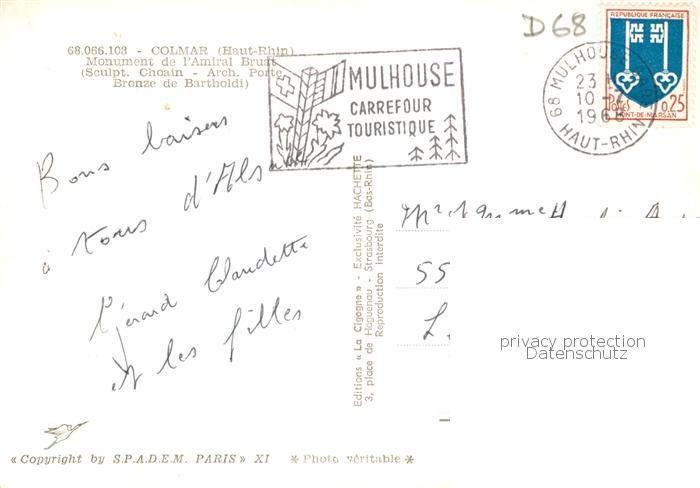 D68
68.066.103 - COLMAR (Haut-Rhin)
Monument de l'Amiral Bruat
(Sculpt. Choain - Arch. Porte
Bronze de Bartholdi)
MULHOUSE
CARREFOUR
TOURISTIQUE
68 MULHOUSE
23 H
10 - 
196
HAUT-RHIN
REPUBLIQUE FRANÇAISE
POSTES 0,25
MONT-DE-MARSAN
Bons baisers
à tous d'Als
Gérard Claudette
et les filles
Editions « La Cigogne » - Exclusivité HACHETTE
3, place de Haguenau - Strasbourg (Bas-Rhin)
Reproduction interdite
55
L
privacy protection
Datenschutz
« Copyright by S.P.A.D.E.M. PARIS » XI * Photo véritable *